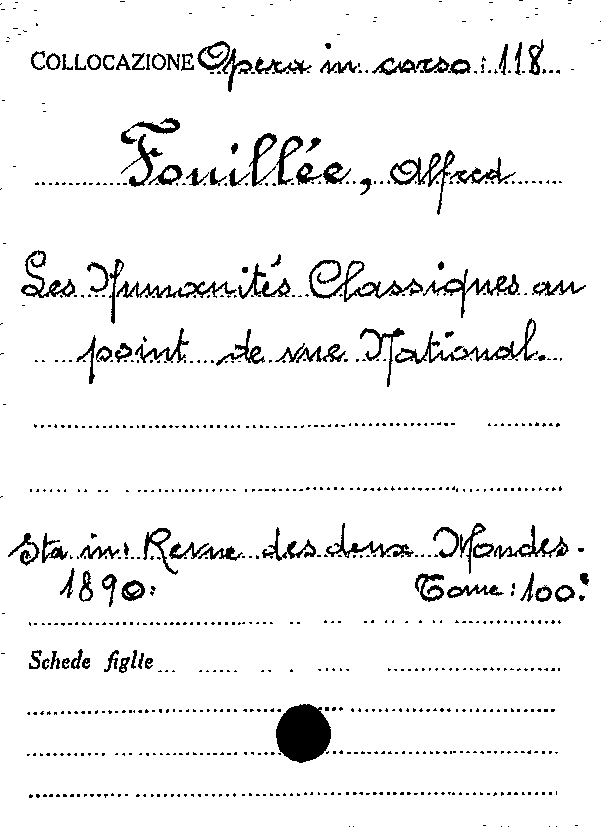 COLLOCAZIONE Opera in corso: 118
Fouillée, Alfred
Les Humanités Classiques au
point de vue National.
Sta in: Revue des deux Mondes.
1890: Tome: 100.º
Schede figlie